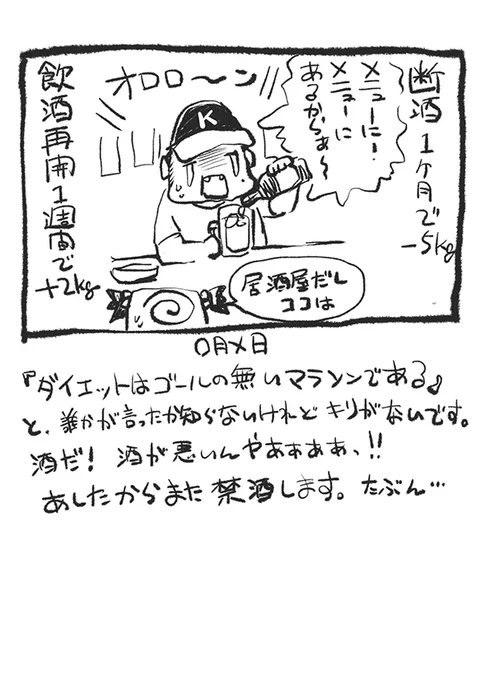 断酒1ヶ月で-5kg
メニューに!
メニューに
あるからぁ〜
オロロ〜ン
K
飲酒再開1週間で+2kg
居酒屋だし
ココは
○月×日
『ダイエットはゴールの無いマラソンである』
と、誰かが言ったか知らないけれどキリがないです。
酒だ!酒が悪いんやあぁぁぁっ!!
あしたからまた禁酒します。たぶん…